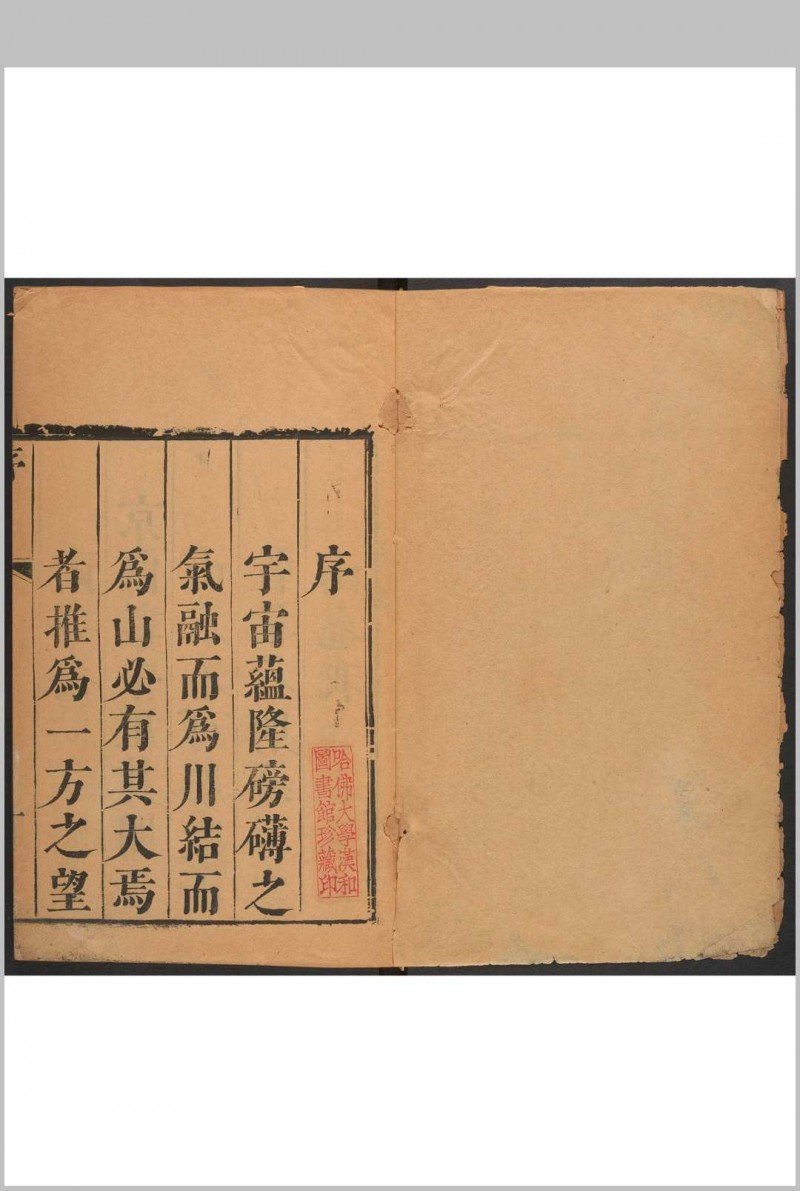 序
宇宙蘊隆磅礴之
氣融而爲川結而
爲山必有其大焉
者推爲一方之望
哈佛大學漢和
圖書館珍藏印